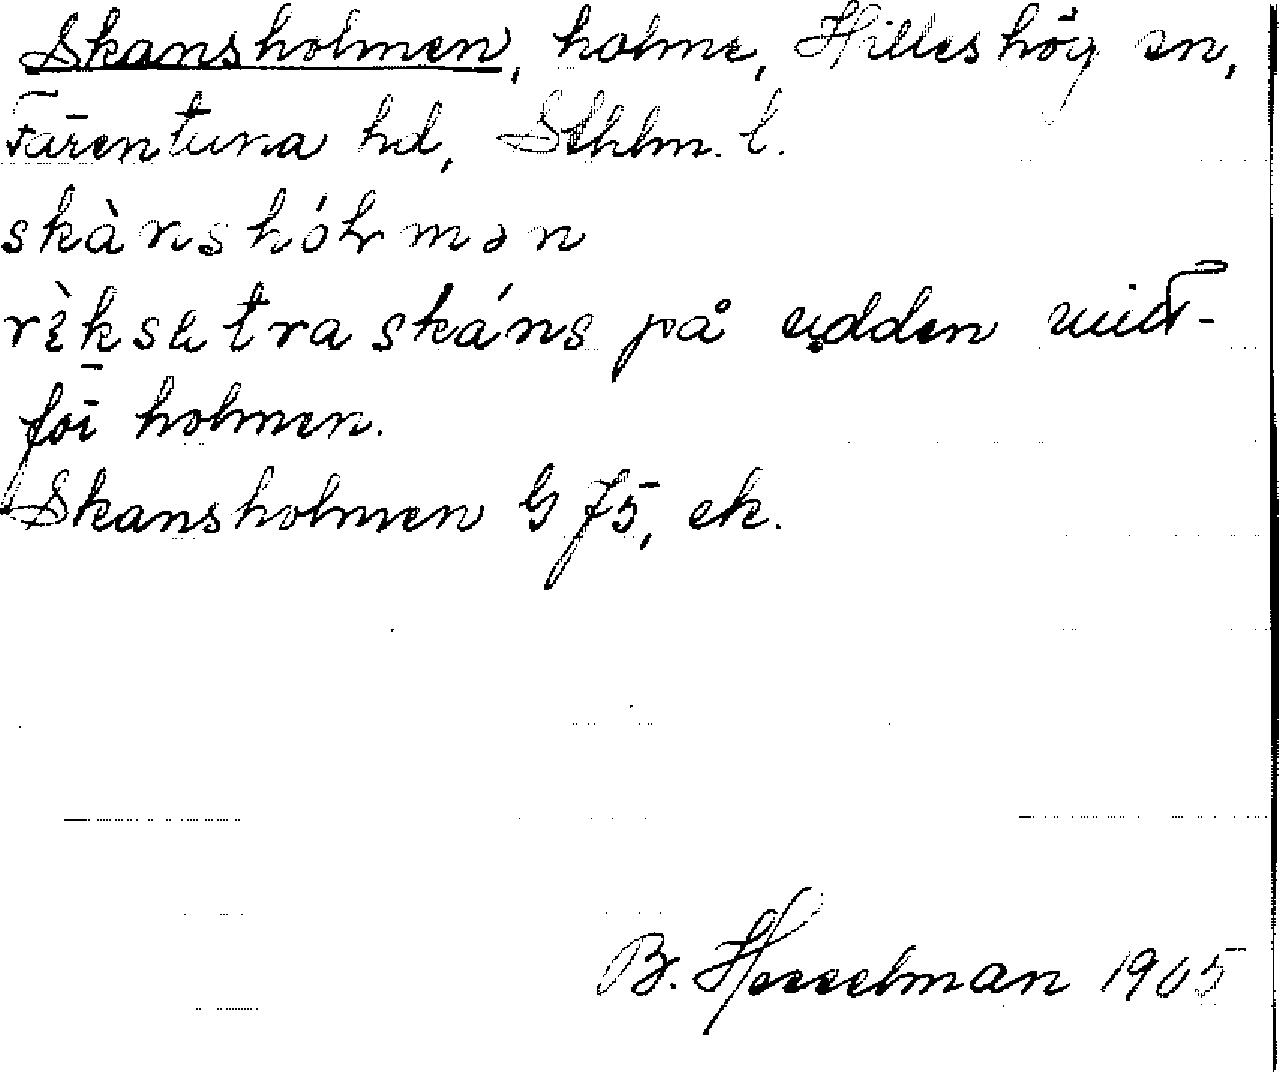 Skansholmen, holme, Hilleshög sn,
Färentuna hd, Sthlm. l.
skànshólmən
rìksətraskáns på udden mitt-
för holmen.
Skansholmen G 75, ek.
B. Hesselman 1905